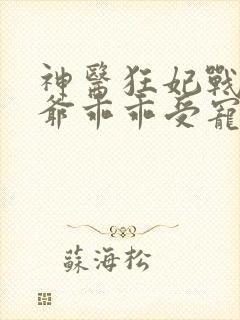 神醫狂妃戰
爺乖乖受寵
蘇海松